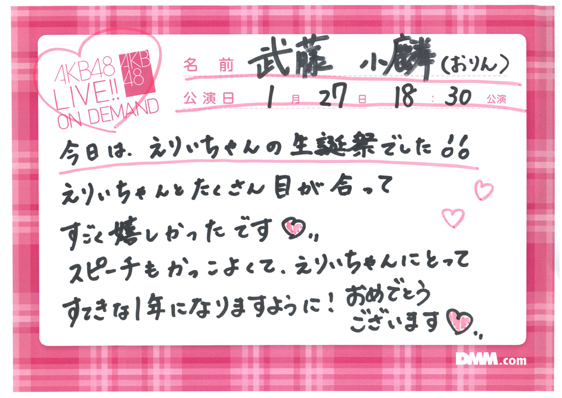 AKB48
LIVE!!
ON DEMAND
AKB
48
名前 武藤 小麟(おりん)
公演日 1月27日 18:30公演
今日は、えりぃちゃんの生誕祭でした!!
えりぃちゃんとたくさん目が合って
すごく嬉しかったです♡,,
スピーチもかっこよくて、えりぃちゃんにとって
すてきな1年になりますように! おめでとう
ございます♡,,
DMM.com